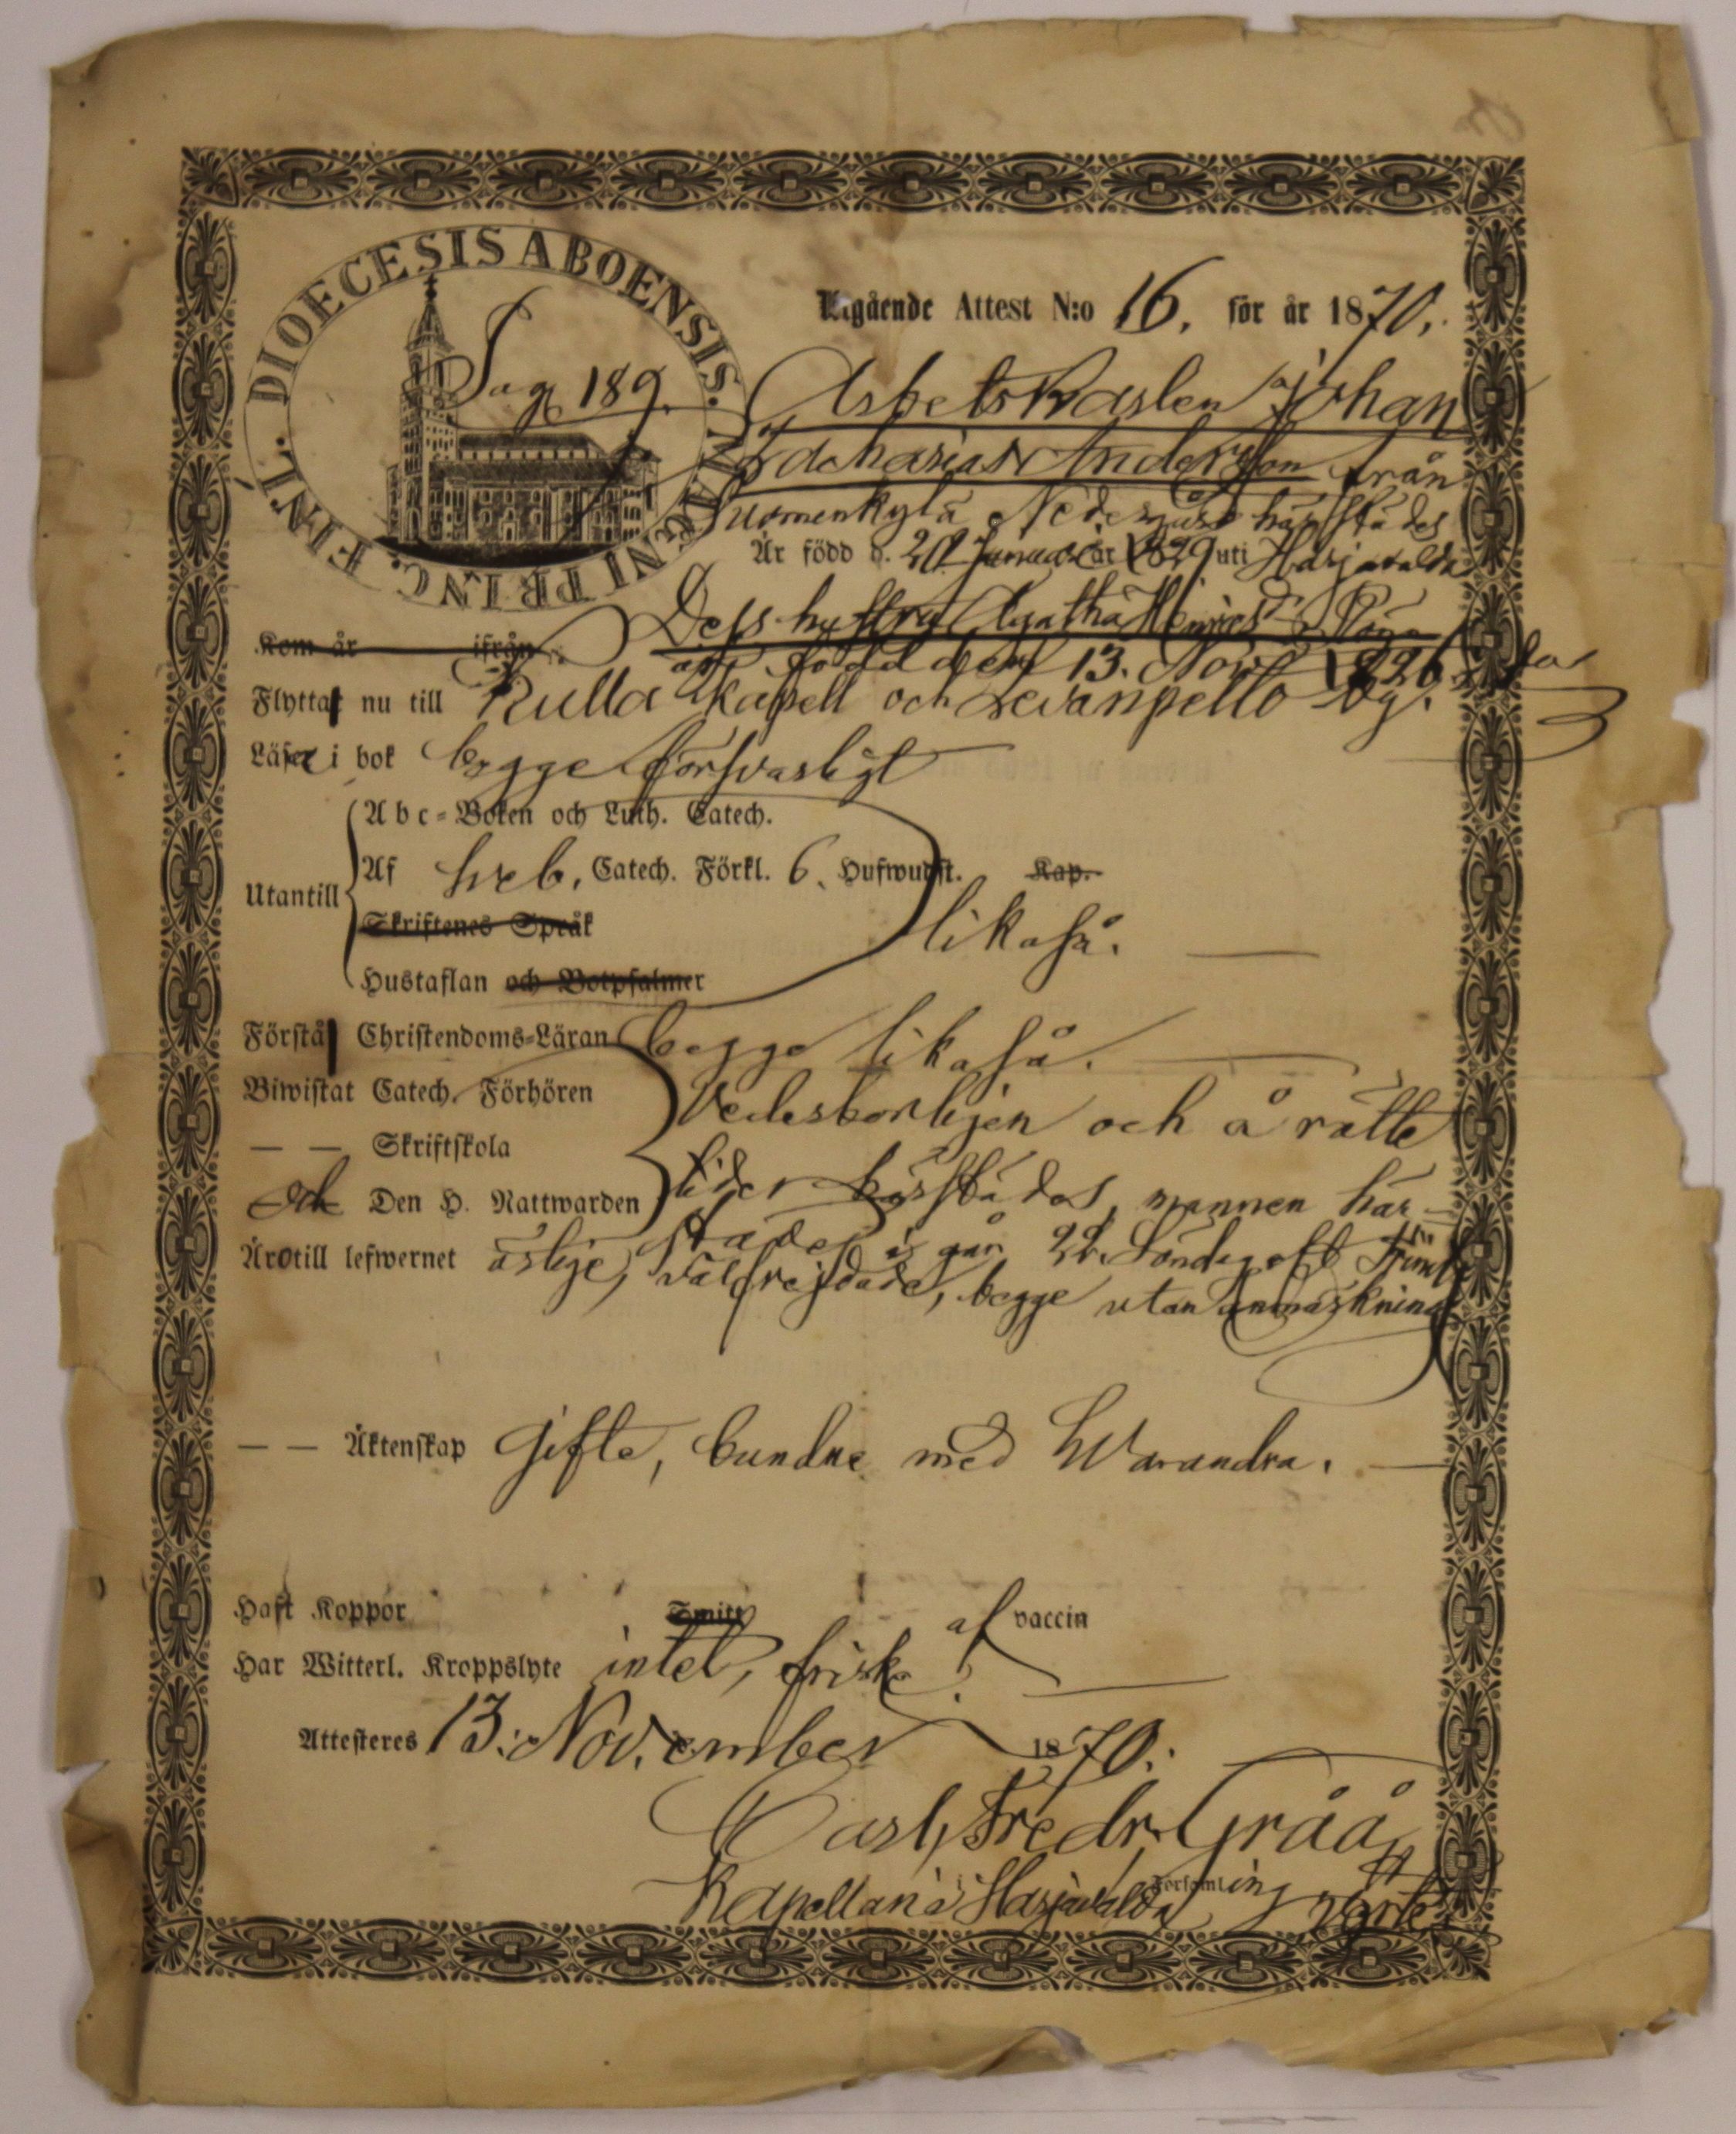 DIOECESIS ABOENSIS. MAGNI PRINC. FINL.
Pag 189.
Utgående Attest N:o 16. för år 1870.
Arbetskarlen Johan
Zacharias Andersson från
Suomenkylä härstädes
Är född d. Januari år 1829 uti Harjavalda
Kom år ifrån
Dess hustru Agatha
är född den 13. Nov. 1826
Flytta nu till Kulla Kapell och by.
Läser i bok begge försvarligt
Utantill
Abc-Boken och Luth. Catech.
Af Catech. Förkl. 6. Hufwudst. Kap.
Skriftenes Språk
likaså.
Hustaflan och Botpsalmer
Förstå Christendoms-Läran begge likaså.
Biwistat Catech. Förhören
Vederbörligen och å rätte
— — Skriftskola
tider härstädes, mannen här-
och Den H. Nattwarden
städes i går, 22. Söndag eft. Trinit.
Äro till lefwernet ärlige, välfrejdade, begge utan anmärkning
— — Äktenskap Gifte, bundne med hvarandra.
Haft Koppor Smitt af vaccin
Har Witterl. Kroppslyte intet, friska.
Attesteres 13. November 1870.
Carl Fredr. Gråå
Kapellan i Harjavalda Församling